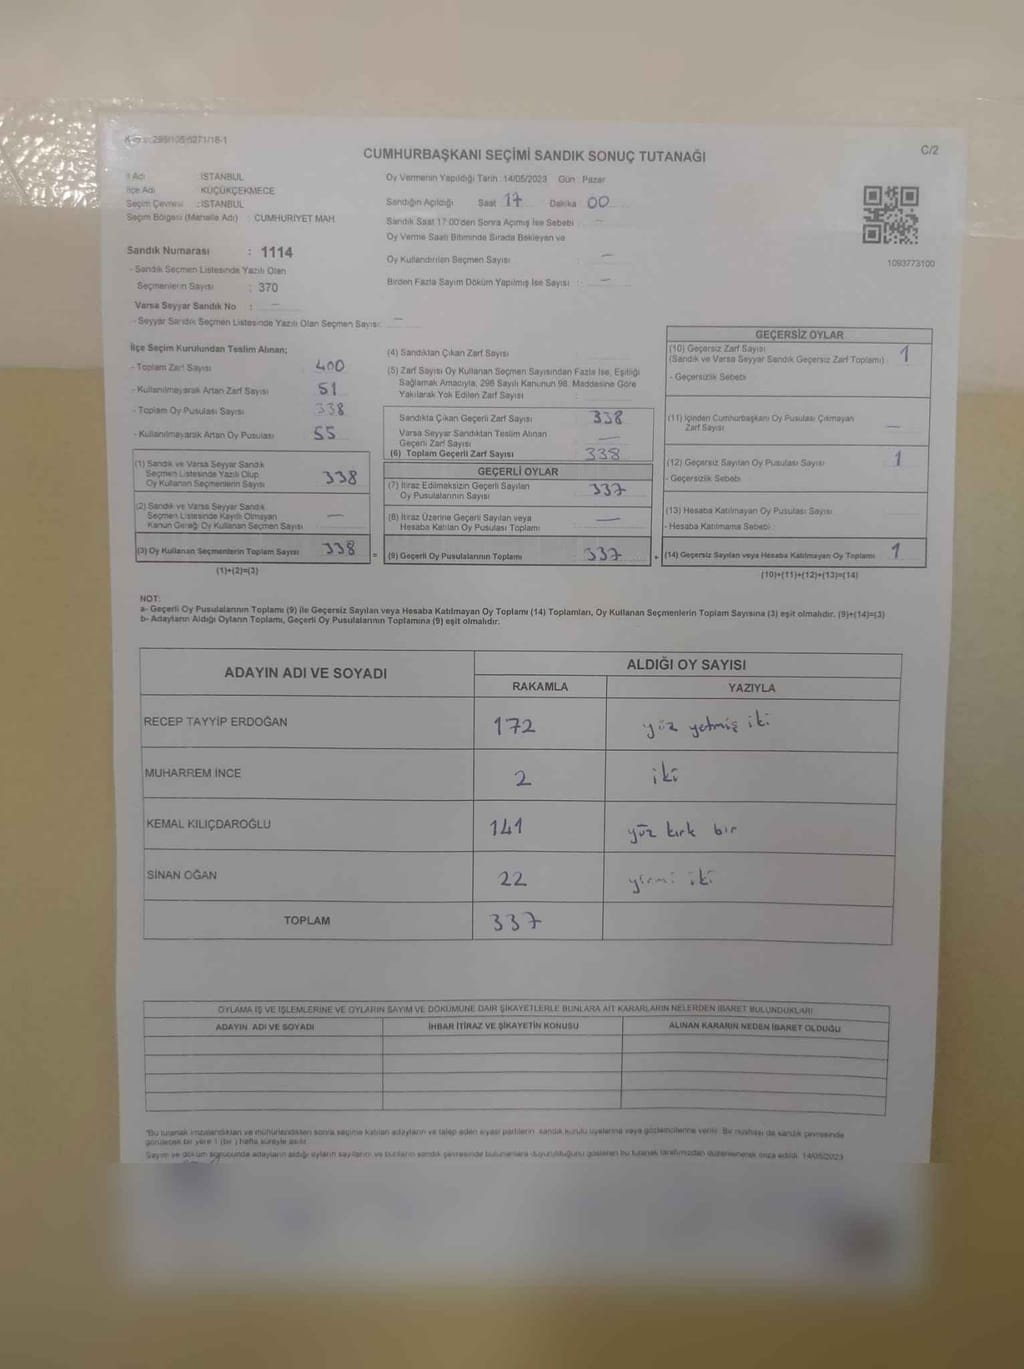 CUMHURBAŞKANI SEÇİMİ SANDIK SONUÇ TUTANAĞI
C/2
İl Adı : İSTANBUL
İlçe Adı : KÜÇÜKÇEKMECE
Seçim Çevresi : İSTANBUL
Seçim Bölgesi (Mahalle Adı) : CUMHURİYET MAH.
Sandık Numarası : 1114
- Sandık Seçmen Listesinde Yazılı Olan
Seçmenlerin Sayısı : 370
Varsa Seyyar Sandık No : —
- Seyyar Sandık Seçmen Listesinde Yazılı Olan Seçmen Sayısı: —
Oy Vermenin Yapıldığı Tarih : 14/05/2023 Gün : Pazar
Sandığın Açıldığı Saat 17 Dakika 00
Sandık Saat 17:00'den Sonra Açılmış İse Sebebi : —
Oy Verme Saati Bitiminde Sırada Bekleyen ve
Oy Kullandırılan Seçmen Sayısı : —
Birden Fazla Sayım Döküm Yapılmış İse Sayısı : —
1093773100
İlçe Seçim Kurulundan Teslim Alınan;
- Toplam Zarf Sayısı : 400
- Kullanılmayarak Artan Zarf Sayısı : 51
- Toplam Oy Pusulası Sayısı : 338
- Kullanılmayarak Artan Oy Pusulası : 55
(1) Sandık ve Varsa Seyyar Sandık
Seçmen Listesinde Yazılı Olup
Oy Kullanan Seçmenlerin Sayısı 338
(2) Sandık ve Varsa Seyyar Sandık
Seçmen Listesinde Kayıtlı Olmayan
Kanun Gereği Oy Kullanan Seçmen Sayısı —
(3) Oy Kullanan Seçmenlerin Toplam Sayısı 338
(1)+(2)=(3)
(4) Sandıktan Çıkan Zarf Sayısı :
(5) Zarf Sayısı Oy Kullanan Seçmen Sayısından Fazla İse, Eşitliği
Sağlamak Amacıyla, 298 Sayılı Kanunun 98. Maddesine Göre
Yakılarak Yok Edilen Zarf Sayısı :
Sandıkta Çıkan Geçerli Zarf Sayısı 338
Varsa Seyyar Sandıktan Teslim Alınan
Geçerli Zarf Sayısı —
(6) Toplam Geçerli Zarf Sayısı 338
GEÇERLİ OYLAR
(7) İtiraz Edilmeksizin Geçerli Sayılan
Oy Pusulalarının Sayısı 337
(8) İtiraz Üzerine Geçerli Sayılan veya
Hesaba Katılan Oy Pusulası Toplamı —
= (9) Geçerli Oy Pusulalarının Toplamı 337
GEÇERSİZ OYLAR
(10) Geçersiz Zarf Sayısı
(Sandık ve Varsa Seyyar Sandık Geçersiz Zarf Toplamı) : 1
- Geçersizlik Sebebi
(11) İçinden Cumhurbaşkanı Oy Pusulası Çıkmayan
Zarf Sayısı —
(12) Geçersiz Sayılan Oy Pusulası Sayısı 1
- Geçersizlik Sebebi
(13) Hesaba Katılmayan Oy Pusulası Sayısı
- Hesaba Katılmama Sebebi
+ (14) Geçersiz Sayılan veya Hesaba Katılmayan Oy Toplamı 1
(10)+(11)+(12)+(13)=(14)
NOT:
a- Geçerli Oy Pusulalarının Toplamı (9) ile Geçersiz Sayılan veya Hesaba Katılmayan Oy Toplamı (14) Toplamları, Oy Kullanan Seçmenlerin Toplam Sayısına (3) eşit olmalıdır. (9)+(14)=(3)
b- Adayların Aldığı Oyların Toplamı, Geçerli Oy Pusulalarının Toplamına (9) eşit olmalıdır.
ADAYIN ADI VE SOYADI
ALDIĞI OY SAYISI
RAKAMLA YAZIYLA
RECEP TAYYİP ERDOĞAN 172 yüz yetmiş iki
MUHARREM İNCE 2 iki
KEMAL KILIÇDAROĞLU 141 yüz kırk bir
SİNAN OĞAN 22 yirmi iki
TOPLAM 337
OYLAMA İŞ VE İŞLEMLERİNE VE OYLARIN SAYIM VE DÖKÜMÜNE DAİR ŞİKAYETLERLE BUNLARA AİT KARARLARIN NELERDEN İBARET BULUNDUKLARI
ADAYIN ADI VE SOYADI İHBAR İTİRAZ VE ŞİKAYETİN KONUSU ALINAN KARARIN NEDEN İBARET OLDUĞU
*Bu tutanak imzalandıktan ve mühürlendikten sonra seçime katılan adayların ve talep eden siyasi partilerin sandık kurulu üyelerine veya gözlemcilerine verilir. Bir nüshası da sandık çevresinde
görülecek bir yere 1 (bir) hafta süreyle asılır.
Sayım ve döküm sonucunda adayların aldığı oyların sayılarını ve bunların sandık çevresinde bulunanlara duyurulduğunu gösteren bu tutanak tarafımızdan düzenlenerek imza edildi. 14/05/2023